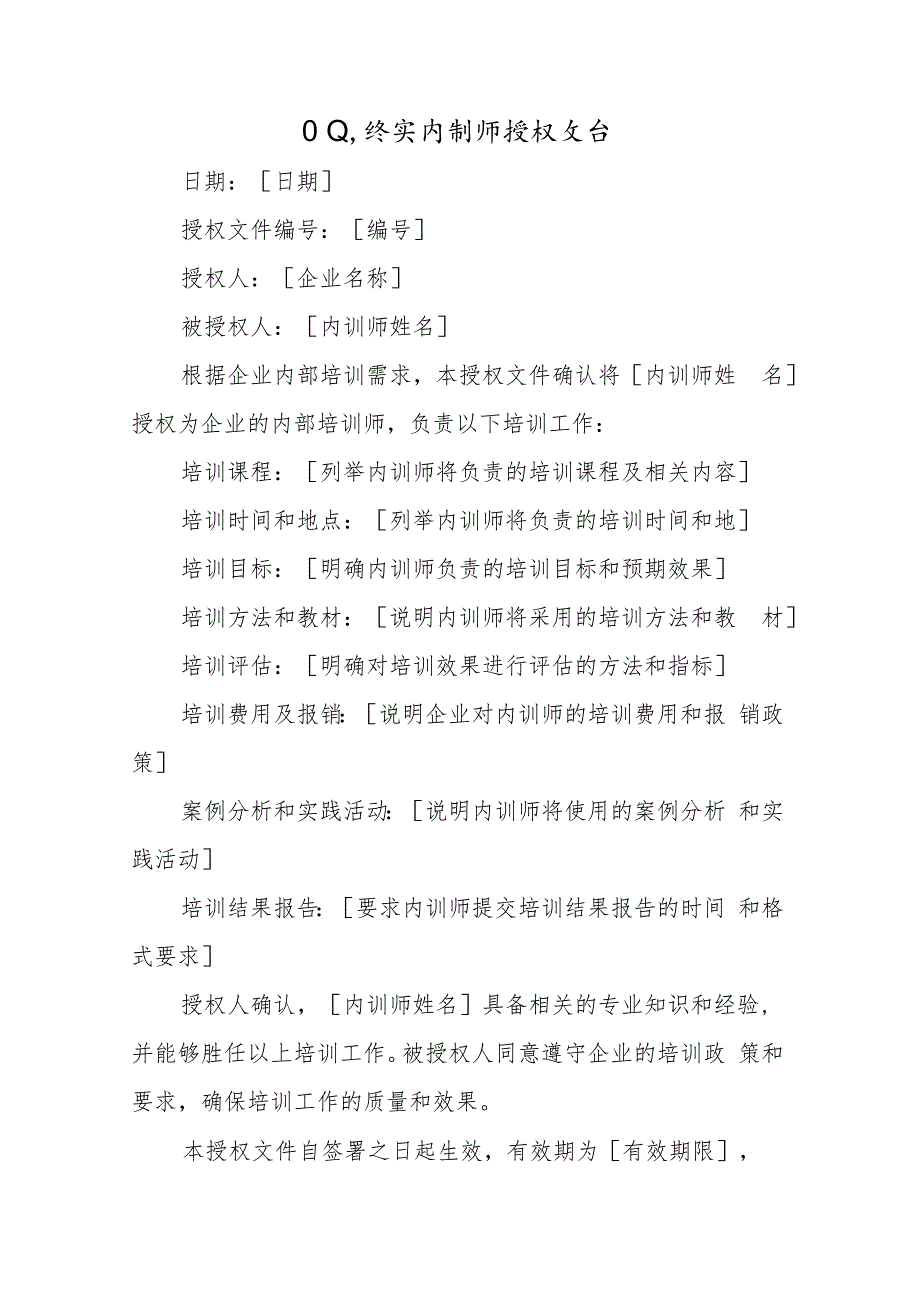 0 Q,终实内制师授权文台
日期：［日期］
授权文件编号：［编号］
授权人：［企业名称］
被授权人：［内训师姓名］
根据企业内部培训需求，本授权文件确认将［内训师姓 名］
授权为企业的内部培训师，负责以下培训工作：
培训课程：［列举内训师将负责的培训课程及相关内容］
培训时间和地点：［列举内训师将负责的培训时间和地］
培训目标：［明确内训师负责的培训目标和预期效果］
培训方法和教材：［说明内训师将采用的培训方法和教 材］
培训评估：［明确对培训效果进行评估的方法和指标］
培训费用及报销：［说明企业对内训师的培训费用和报 销政
策］
案例分析和实践活动：［说明内训师将使用的案例分析 和实
践活动］
培训结果报告：［要求内训师提交培训结果报告的时间 和格
式要求］
授权人确认，［内训师姓名］具备相关的专业知识和经验，
并能够胜任以上培训工作。被授权人同意遵守企业的培训政 策和
要求，确保培训工作的质量和效果。
本授权文件自签署之日起生效，有效期为［有效期限］，